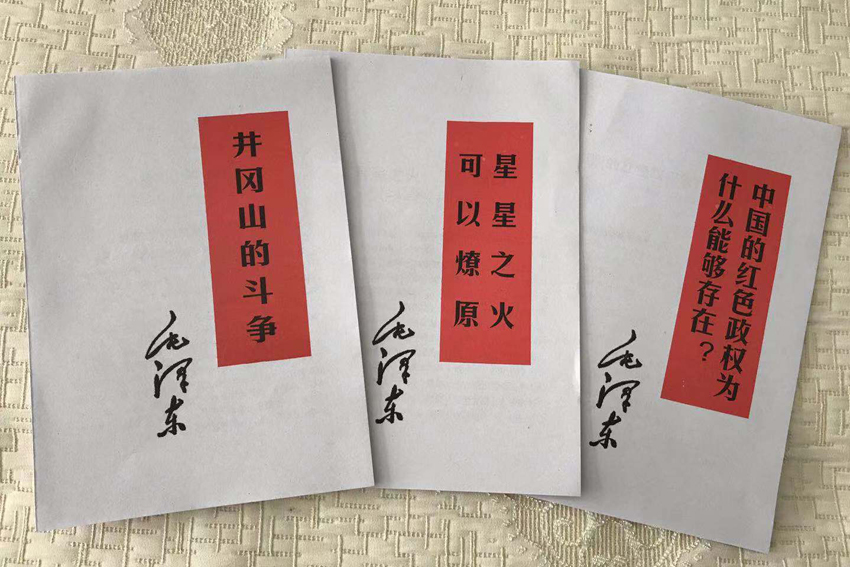 井冈山的斗争
毛泽东
星星之火
可以燎原
毛泽东
中国的红色政权为
什么能够存在？
毛泽东